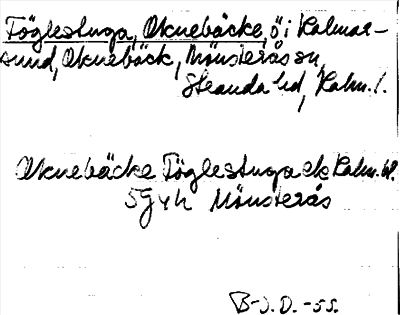 Föglestuga, Oknebäcke, ö i Kalmar-
sund, Oknebäck, Mönsterås sn,
Stranda hd, Kalm. l.
Oknebäcke Föglestuga ek Kalm. bl.
5G4h Mönsterås
B-J.D.-55.